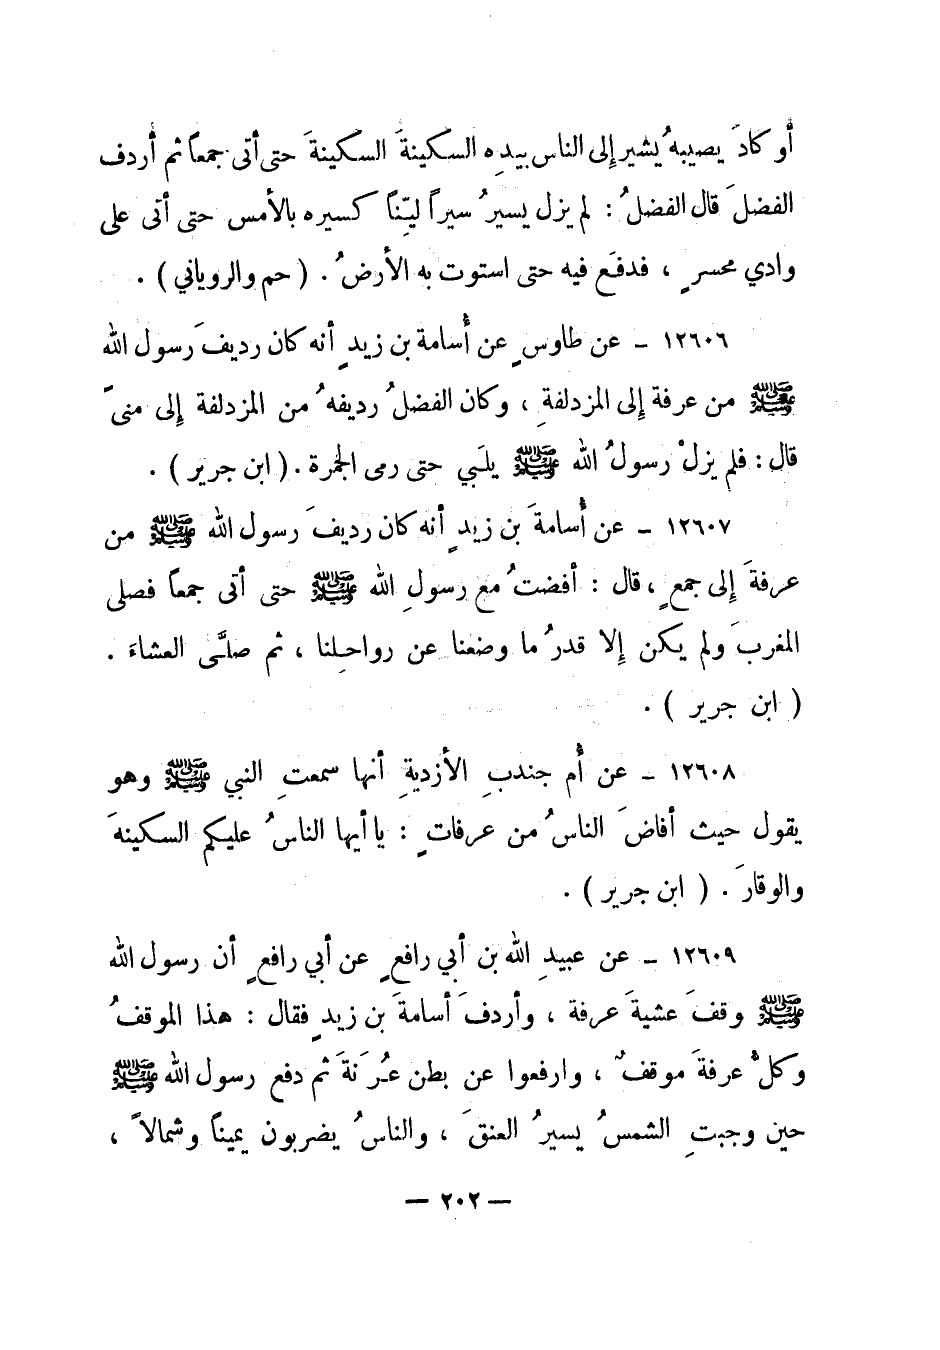 أو كادَ يصيبهُ يشير إلى الناس بيدِه السكينةَ السكينةَ حتى أتى جمعاً ثم أردف
الفضلَ قال الفضلُ : لم يزل يسيرُ سيراً ليّناً كسيره بالأمس حتى أتى على
وادي محسرٍ ، فدفَع فيه حتى استوت به الأرضُ . ( حم والروياني ) .
١٢٦٠٦ ـ عن طاوسٍ عن أُسامة بن زيدٍ أنه كان رديفَ رسول الله
ﷺ من عرفة إلى المزدلفةِ ، وكان الفضلُ رديفهُ من المزدلفة إلى منىً
قال : فلم يزلْ رسولُ الله ﷺ يلَبي حتى رمى الجمرة . ( ابن جرير ) .
١٢٦٠٧ ـ عن أُسامةَ بن زيدٍ أنه كان رديفَ رسول الله ﷺ من
عرفةَ إلى جمعٍ ، قال : أفضتُ مع رسولِ الله ﷺ حتى أتى جمعاً فصلى
المغربَ ولم يكن إلا قدرُ ما وضعنا عن رواحلِنا ، ثم صلَّى العشاءَ .
( ابن جرير ) .
١٢٦٠٨ ـ عن أُم جندبِ الأزديةِ أنها سمعتِ النبي ﷺ وهو
يقول حيث أفاضَ الناسُ من عرفاتٍ : يا أيها الناسُ عليكم السكينهَ
والوقارَ . ( ابن جرير ) .
١٢٦٠٩ ـ عن عبيدِ الله بن أبي رافعٍ عن أبي رافعٍ أن رسول الله
ﷺ وقفَ عشيةَ عرفة ، وأردفَ أسامةَ بن زيدٍ فقال : هذا الموقفُ
وكلُّ عرفةَ موقفٌ ، وارفعوا عن بطن عُرَنةَ ثم دفع رسول الله ﷺ
حين وجبتِ الشمسُ يسيرُ العنقَ ، والناسُ يضربون يميناً وشمالاً ،
— ٢٠٢ —